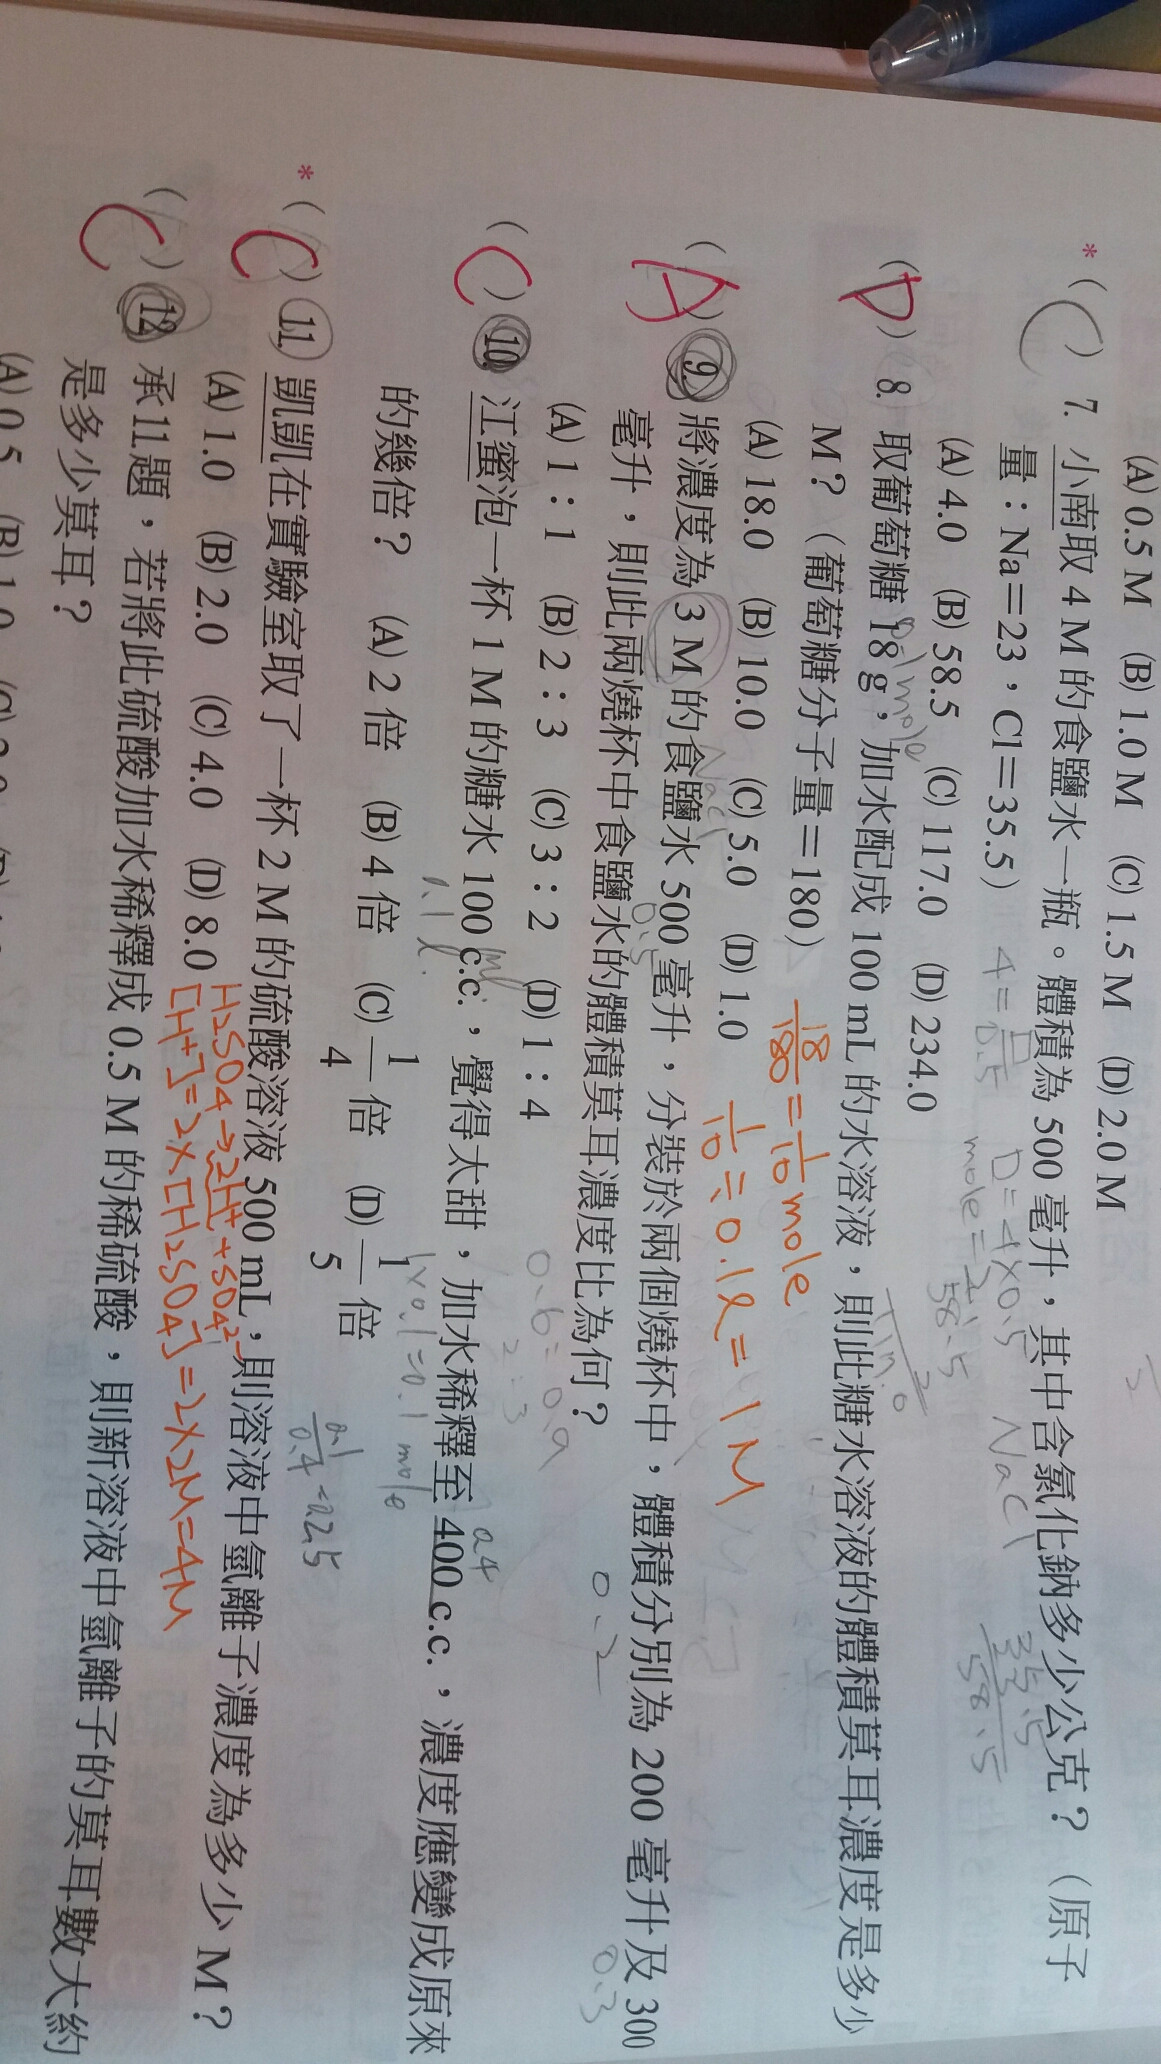 (A) 0.5 M (B) 1.0 M (C) 1.5 M (D) 2.0 M
*( C ) 7. 小南取 4 M 的食鹽水一瓶。體積為 500 毫升，其中含氯化鈉多少公克？（原子
量：Na＝23，Cl＝35.5）
4=
0.5
n=4×0.5
NaCl
35.5
58.5
mole=2
58.5
(A) 4.0 (B) 58.5 (C) 117.0 (D) 234.0
( D ) 8. 取葡萄糖 18 g，加水配成 100 mL 的水溶液，則此糖水溶液的體積莫耳濃度是多少
0.1mole
M？（葡萄糖分子量＝180）
18/180=1/10mole
(A) 18.0 (B) 10.0 (C) 5.0 (D) 1.0
1/10÷0.1l=1M
( A ) 9. 將濃度為 3 M 的食鹽水 500 毫升，分裝於兩個燒杯中，體積分別為 200 毫升及 300
NaCl
0.5
0.2
0.3
毫升，則此兩燒杯中食鹽水的體積莫耳濃度比為何？
(A) 1：1 (B) 2：3 (C) 3：2 (D) 1：4
0.6=0.9
2=3
( C ) 10. 江蜜泡一杯 1 M 的糖水 100 c.c.，覺得太甜，加水稀釋至 400 c.c.，濃度應變成原來
ml
0.1l.
0.4
1×0.1=0.1mole
的幾倍？ (A) 2 倍 (B) 4 倍 (C) 1/4 倍 (D) 1/5 倍
0.1/0.4=0.25
*( C ) 11. 凱凱在實驗室取了一杯 2 M 的硫酸溶液 500 mL，則溶液中氫離子濃度為多少 M？
(A) 1.0 (B) 2.0 (C) 4.0 (D) 8.0
H2SO4→2H⁺+SO4²⁻
[H⁺]=2×[H2SO4]=2×2M=4M
( C ) 12. 承11題，若將此硫酸加水稀釋成 0.5 M 的稀硫酸，則新溶液中氫離子的莫耳數大約
是多少莫耳？
(A) 0.5 (B) 1.0 (C) 2.0